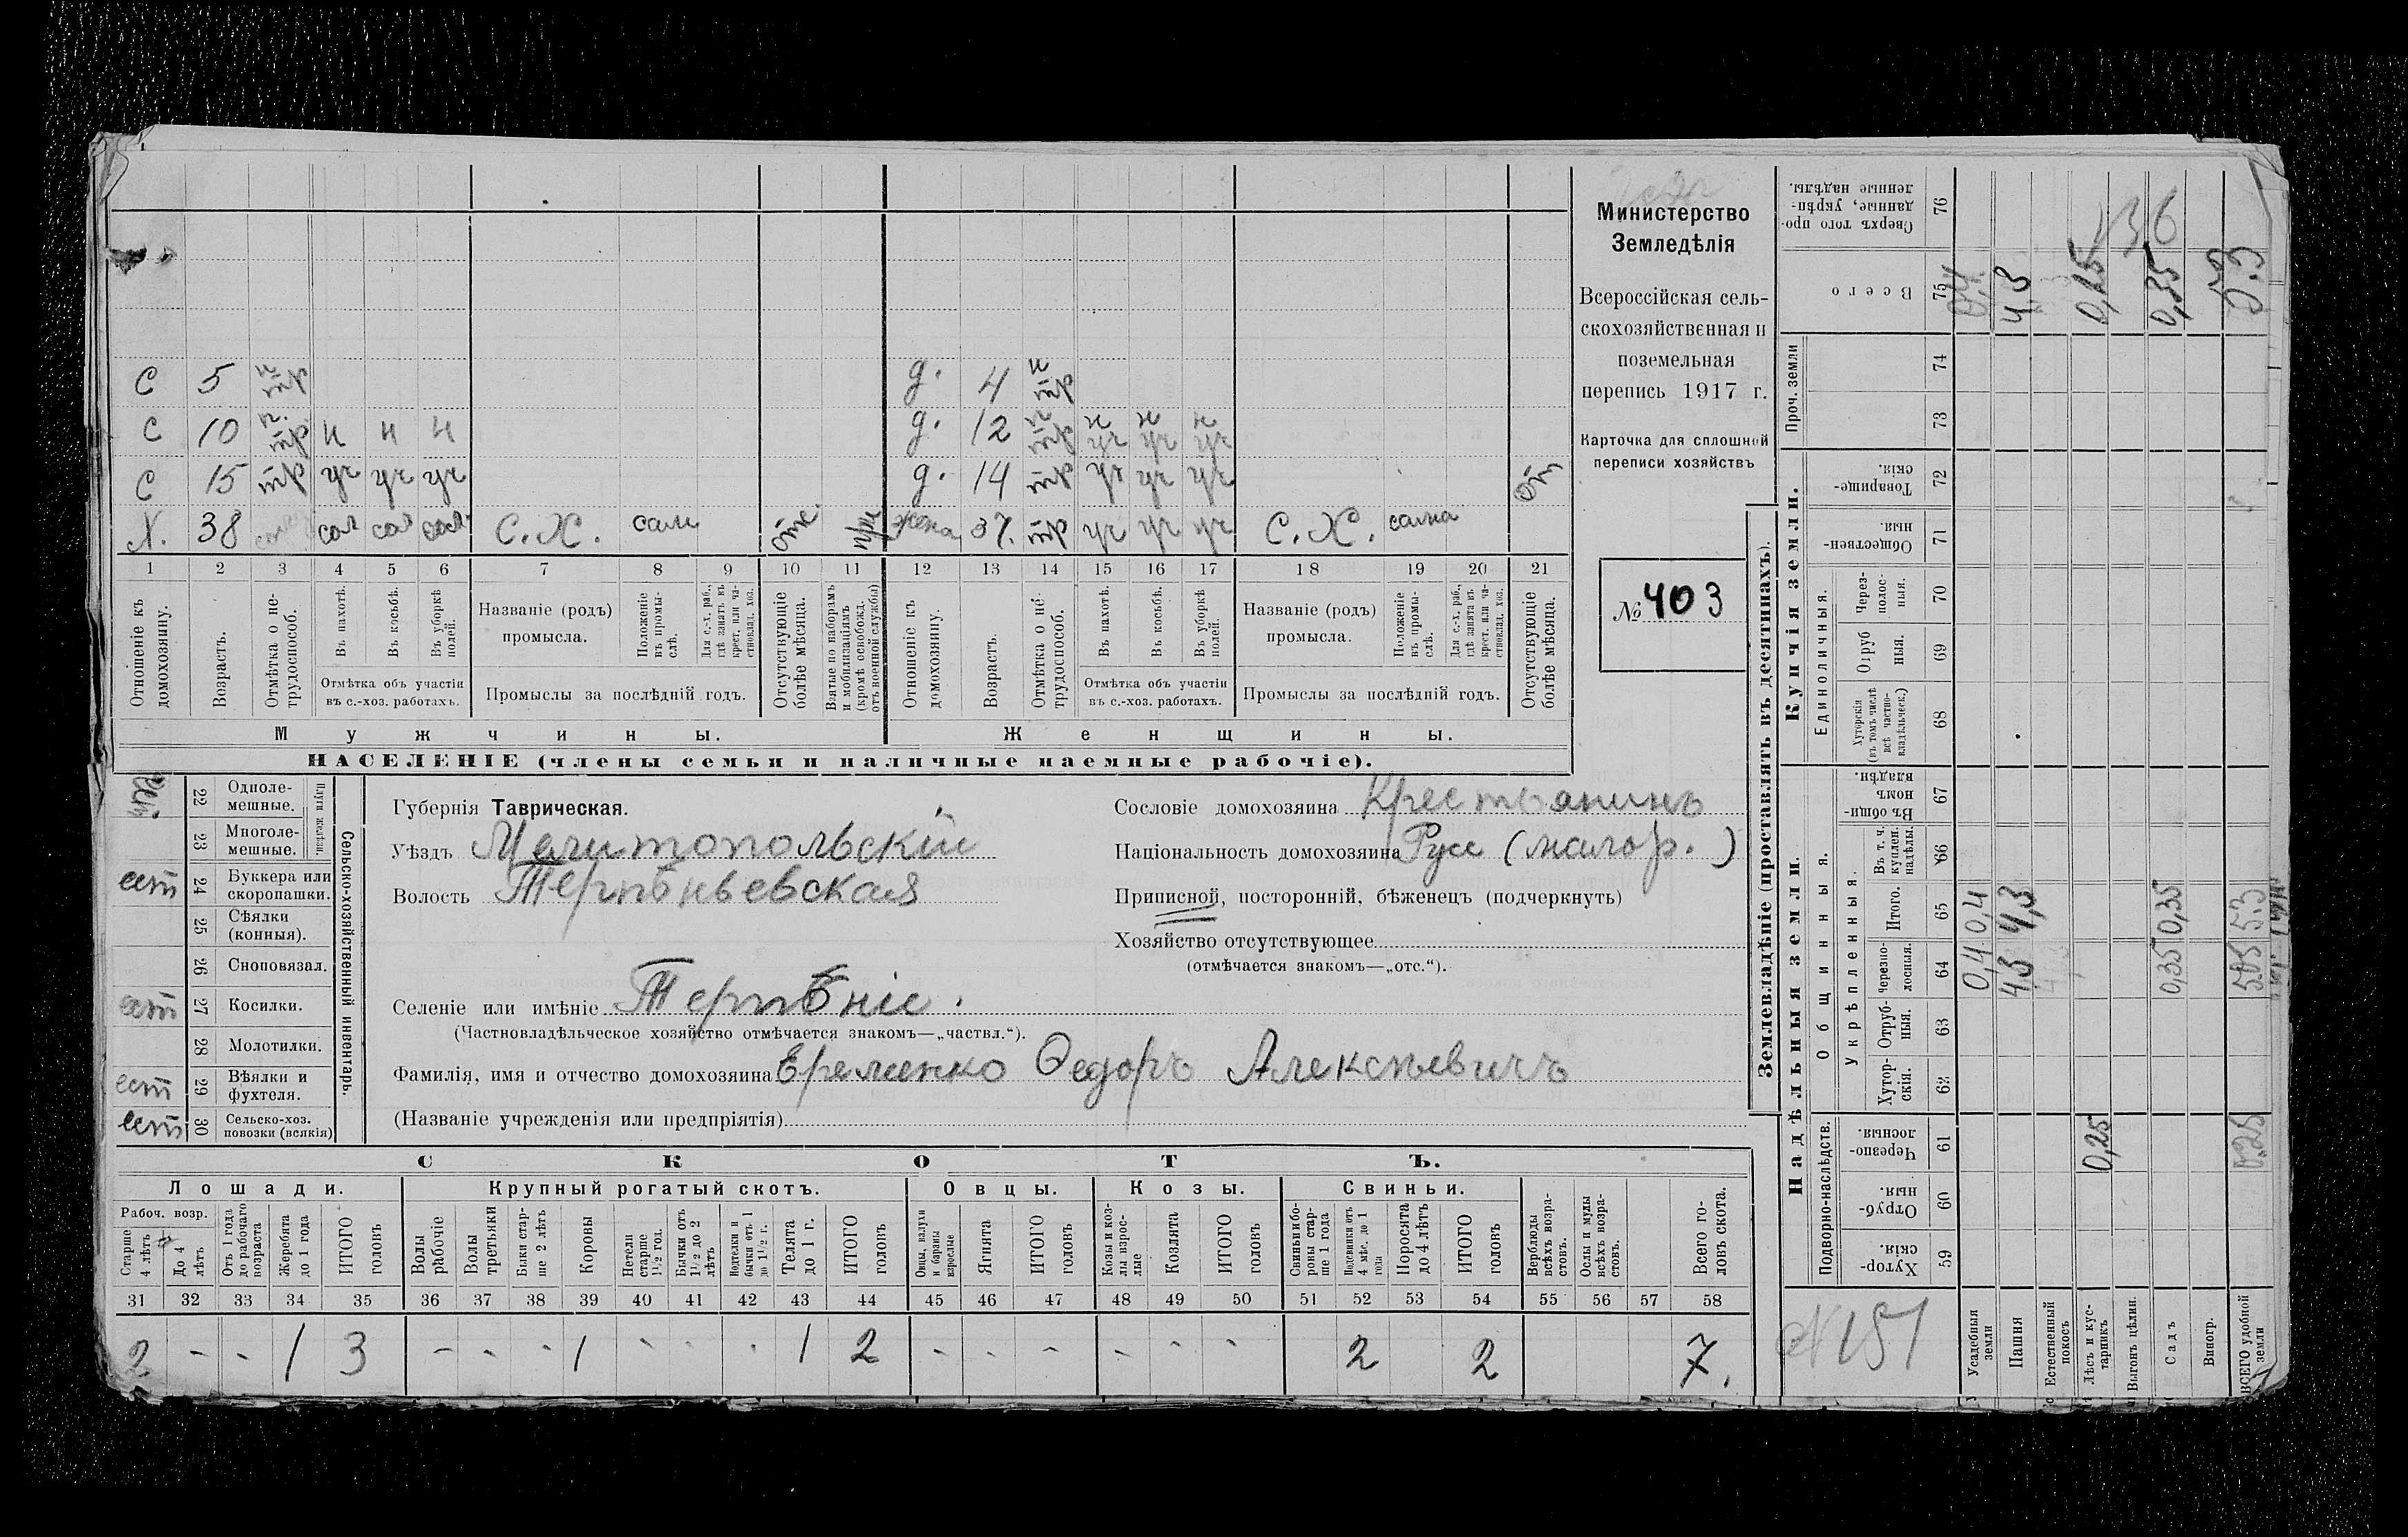 С 5 н тр д. 4 н тр
С 10 н. тр н н н д. 12 н тр н уч н уч н уч
С 15 тр уч уч уч д. 14 тр уч уч уч от
Х. 38 сам сам сам С.Х. сам отс. жена 37. тр уч уч уч С.Х. сама
1 2 3 4 5 6 7 8 9 10 11 12 13 14 15 16 17 18 19 20 21
Отношеніе къ домохозяину.
Возрастъ.
Отмѣтка о не-трудоспособ.
Въ пахотѣ.
Въ косьбѣ.
Въ уборкѣ полей.
Отмѣтка объ участіи
въ с.-хоз. работахъ.
Названіе (родъ)
промысла.
Положеніе въ промы-слѣ.
Для с.-х. раб., гдѣ занятъ въ крест. или ча-стновлад. хоз.
Промыслы за послѣдній годъ.
Отсутствующіе болѣе мѣсяца.
Взятые по наборамъ и мобилизаціямъ (кромѣ освобожд. отъ военной службы)
Отношеніе къ домохозяину.
Возрастъ.
Отмѣтка о не-трудоспособ.
Въ пахотѣ.
Въ косьбѣ.
Въ уборкѣ полей.
Отмѣтка объ участіи
въ с.-хоз. работахъ.
Названіе (родъ)
промысла.
Положеніе въ промы-слѣ.
Для с.-х. раб., гдѣ занята въ крест. или ча-стновлад. хоз.
Промыслы за послѣдній годъ.
Отсутствующіе болѣе мѣсяца.
Мужчины. Женщины.
НАСЕЛЕНІЕ (члены семьи и наличные наемные рабочіе).
Министерство
Земледѣлія
Всероссійская сель-
скохозяйственная и
поземельная
перепись 1917 г.
Карточка для сплошной
переписи хозяйствъ
№ 403
Сельско-хозяйственный инвентарь.
Плуги желѣзн.
22 Одноле-мешные.
23 Многоле-мешные.
ест 24 Буккера или скоропашки.
25 Сѣялки (конныя).
26 Сноповязал.
ест 27 Косилки.
28 Молотилки.
ест 29 Вѣялки и фухтеля.
ест 30 Сельско-хоз. повозки (всякія)
Губернія Таврическая.
Уѣздъ Мелитопольскій
Волость Терпѣньевская
Селеніе или имѣніе Терпѣніе.
(Частновладѣльческое хозяйство отмѣчается знакомъ—„частвл.“).
Фамилія, имя и отчество домохозяина Еременко Ѳедоръ Алексѣевичъ
(Названіе учрежденія или предпріятія)
Сословіе домохозяина Крестьянинъ
Національность домохозяина Русс (малор.)
Приписной, посторонній, бѣженецъ (подчеркнуть)
Хозяйство отсутствующее
(отмѣчается знакомъ—„отс.“).
СКОТЪ.
Лошади. Крупный рогатый скотъ. Овцы. Козы. Свиньи.
Рабоч. возр.
Старше 4 лѣтъ
До 4 лѣтъ
Отъ 1 года до рабочаго возраста
Жеребята до 1 года
ИТОГО головъ
Волы рабочіе
Волы третьяки
Быки стар-ше 2 лѣтъ
Коровы
Нетели старше 1½ год.
Бычки отъ 1½ до 2 лѣтъ
Нетелки и бычки отъ 1 до 1½ г.
Телята до 1 г.
ИТОГО головъ
Овцы, валухи и бараны взрослые
Ягнята
ИТОГО головъ
Козы и коз-лы взрос-лые
Козлята
ИТОГО головъ
Свиньи и бо-ровы стар-ше 1 года
Подсвинки отъ 4 мѣс. до 1 года
Поросята до 4 лѣтъ
ИТОГО головъ
Верблюды всѣхъ возра-стовъ.
Ослы и мулы всѣхъ возра-стовъ.
Всего го-ловъ скота.
31 32 33 34 35 36 37 38 39 40 41 42 43 44 45 46 47 48 49 50 51 52 53 54 55 56 57 58
2 - - 1 3 - - - 1 - - - 1 2 - - - - - - 2 2 7.
Землевладѣніе (проставлять въ десятинахъ).
Купчія земли.
Надѣльныя земли.
Сверхъ того про-данные, укрѣп-ленные надѣлы. 76
Всего 75 0,4 4,3 0,25 0,35 5.3
136
Проч. земли 74
73
Товарище-скія. 72
Обществен-ныя. 71
Единоличныя.
Через-полос-ныя. 70
Отруб ныя. 69
Хуторскія (въ томъ числѣ всѣ частно-владѣльческ.) 68
Общинныя.
Въ общи-номъ владѣн. 67
Укрѣпленныя.
Въ т. ч. куплен. надѣлы. 66
Итого. 65 0,4 4,3 0,35 5.3
Черезпо-лосныя. 64 0,4 4,3 0,35 5.05
Отруб-ныя. 63
Хутор-скія. 62
Подворно-наслѣдств.
Черезпо-лосныя. 61 0,25 0,25
Отруб-ныя. 60
Хутор-скія. 59
№ 151
Усадебныя земли
Пашня
Естественный покосъ
Лѣсъ и кус-тарникъ
Выгонъ цѣлин.
Садъ
Виногр.
ВСЕГО удобной земли